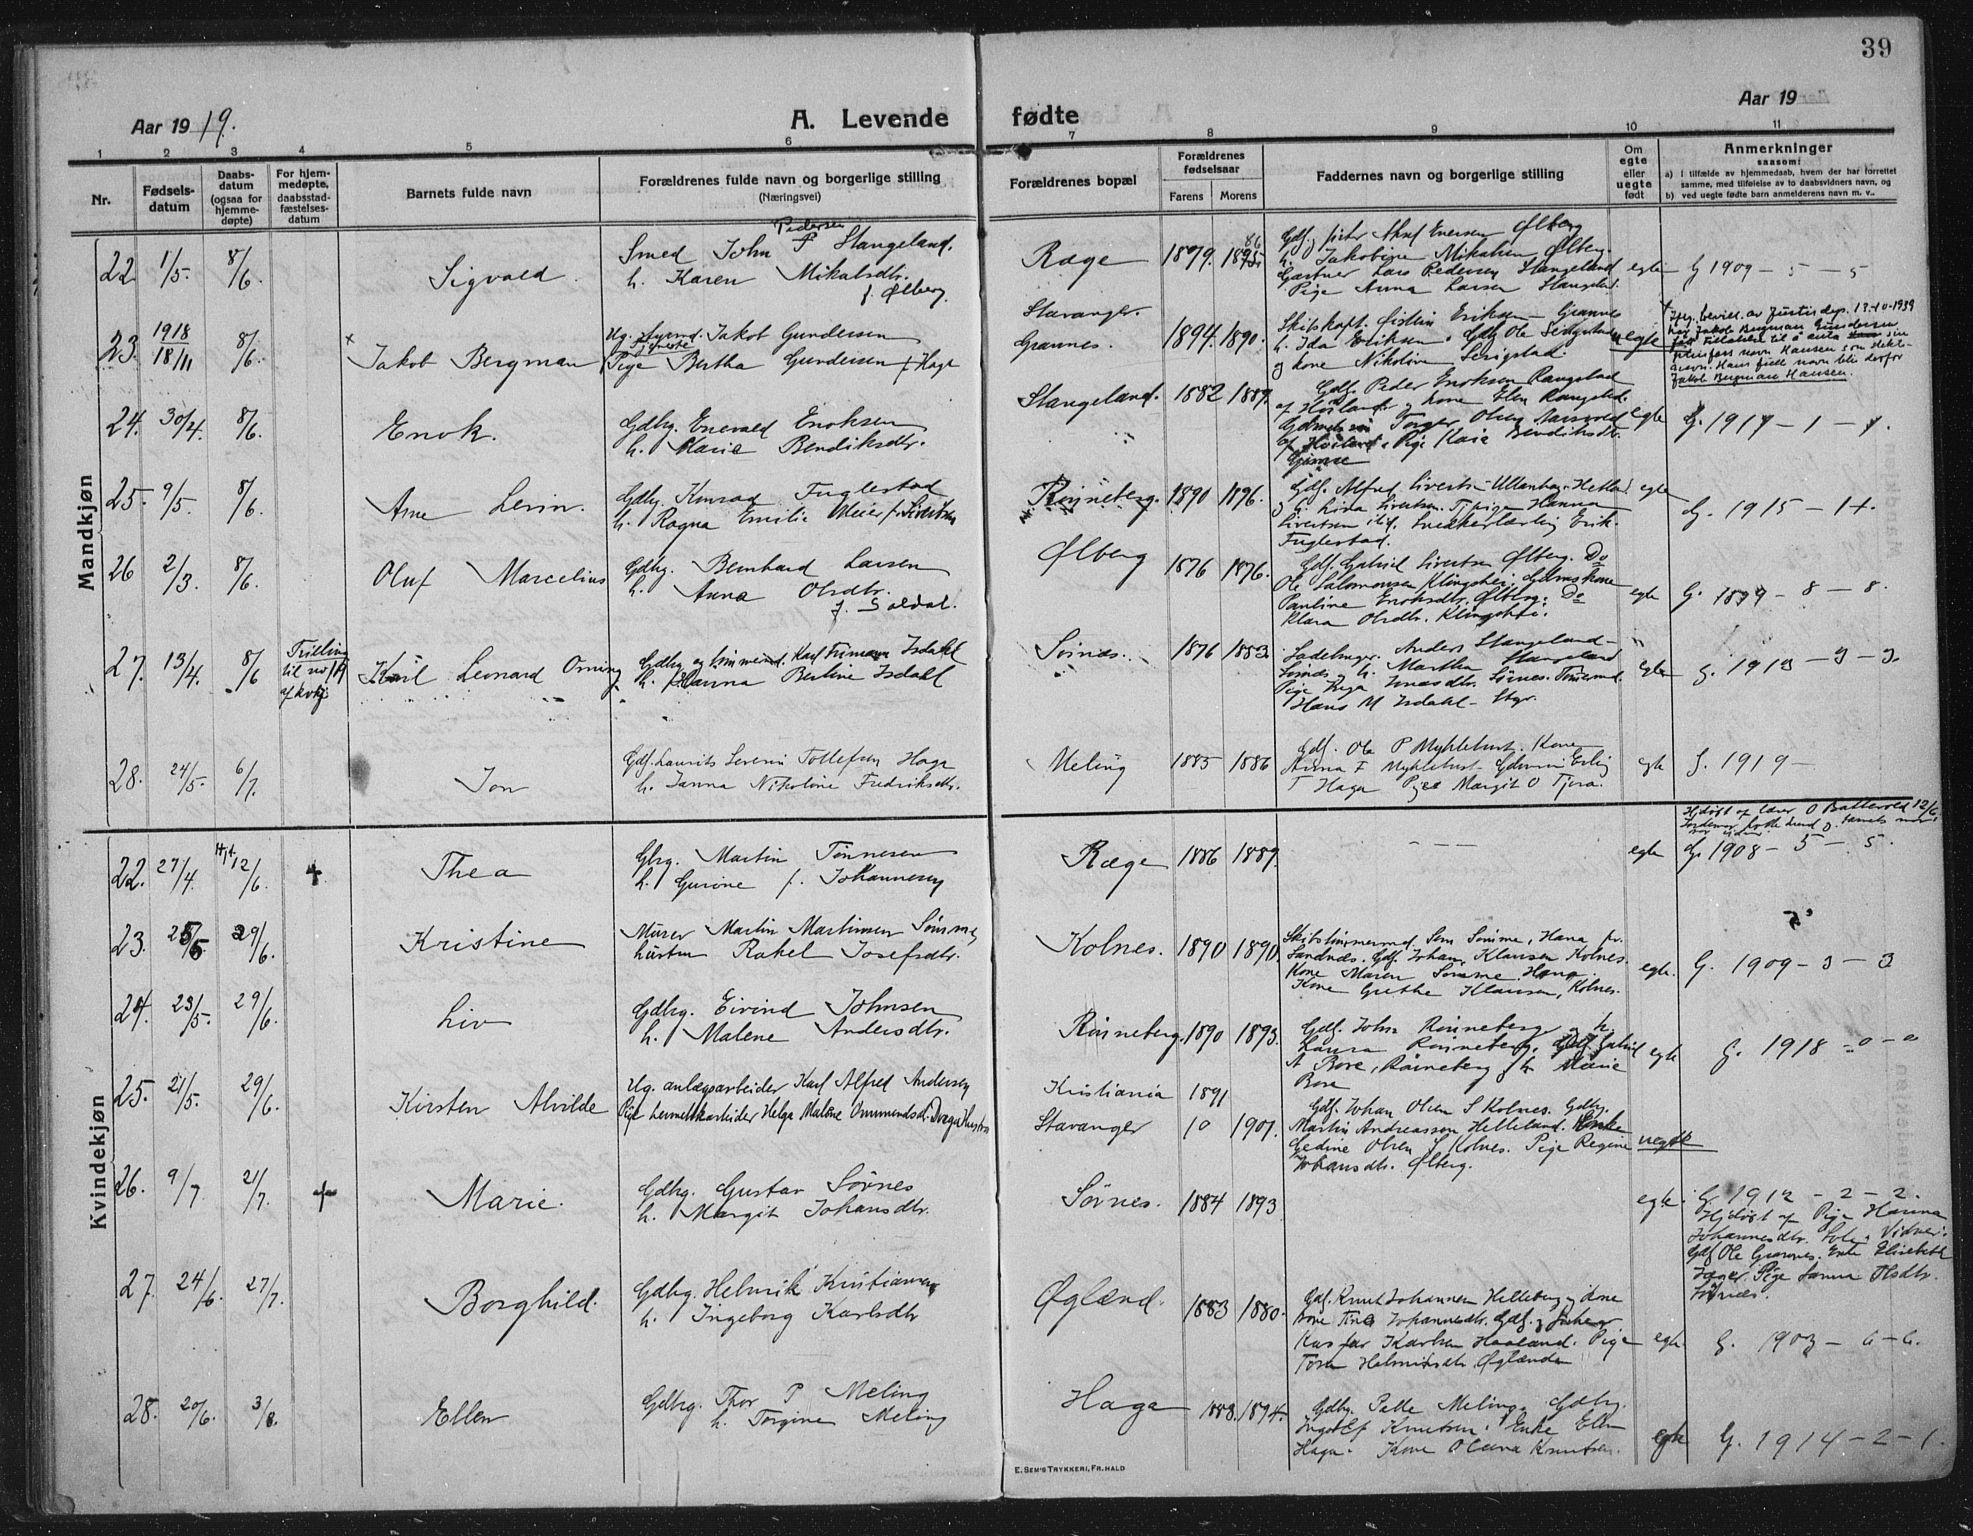 39
Aar 1919.
A. Levende fødte
Aar 19
1 2 3 4 5 6 7 8 9 10 11
Nr.
Fødsels-
datum
Daabs-
datum
(ogsaa for
hjemme-
døpte)
For hjem-
medøpte,
daabsstad-
fæstelses-
datum
Barnets fulde navn
Forældrenes fulde navn og borgerlige stilling
(Næringsvei)
Forældrenes bopæl
Forældrenes
fødselsaar
Farens Morens
Faddernes navn og borgerlige stilling
Om
egte
eller
uegte
født
Anmerkninger
saasom:
a) I tilfælde av hjemmedaab, hvem der har forrettet
samme, med tilføielse av to daabsvidners navn, og
b) ved uegte fødte barn anmelderens navn m. v..
Mandkjøn
22 1/5 8/6. Sigvald
Pedersen
Smed John P Stangeland.
h. Karen Mikalsdtr.
f. Ølberg
Ræge 1879.
86
Jakobine Mikalsen Ølberg.
Gartner Lars Pedersen Stangeland
Pige Anna Larsen Stangeland
egte G 1909 – 5 – 5
23. 1918 18/11 8/6. × Jakob Bergman
Ug. Jakob Gundersen
Pige Bertha Gundersen f Haga
Stavanger.
Grannes. 1894. 1890.
Skibskapt. Eriksen Grannes
h. Ida Eriksen. Gdbr Ole
og kone Nikoline
uegte
bevill. av Justisdep. 13-10-1939
har Jakob Bergman Gundersen
født tillatelse til å anta
navn Hansen som slekts-
navn. Hans fulle navn blir derfor
Jakob Bergman Hansen.
24. 30/4. 8/6. Enok.
Gdbrg. Enevald Enoksen
h. Marie Bendiksdtr.
Stangeland. 1882 1889.
Gdf. Peder Enoksen Rangstad
af Høiland og kone Elen Rangstad.
Torger Olsen
af Høiland. Pige Kaia Bendiksdtr.
Gimre
egte G. 1917 – 1 – 1.
25. 9/5. 8/6. Arne Levin.
Gdbrg. Konrad Fuglestad
h. Ragna Emilie Meier f. Sivertsen
Røineberg. 1890 1896.
Gdf. Alfred Sivertsen Ullenhaug. Hetland
h. Lina Sivertsen. Hanna
Sivertsen Snedkerlærling Erik
Fuglestad.
egte G. 1915 – 1 +.
26 2/3. 8/6. Oluf Marcelius
Gdbrg. Bernhard Larsen
h. Anna Olsdtr.
f. Soldal.
Ølberg 1876 1876.
Gdf. Gabriel Sivertsen Ølberg. Do
Ole Salomonsen Klingshei.
Pauline Enoksdtr. Ølberg. Do
Klara Olsdtr. Klingshei.
egte G. 1899 – 8 – 8.
27. 13/4. 8/6
Trilling
til no 19
af kvkj
Karl Leonard Orning
Gdbrg og tømmerm. Karl Tiemann Isdahl
h. Hanna Berline Isdahl
Sørnes. 1876 1883.
Anders Stangeland
Sørnes, h. Martha Stangeland
Pige Inga Sørnes. Tømmerm.
Hans M Isdahl – Stgr.
egte G. 1913 – 3 – 3.
28. 24/5. 6/7. Jon
Gdf. Laurits Severin Tollefsen Haga
h. Janna Nikoline Fredriksdtr.
Meling 1885 1886
Gdf. Ole P Myklebust. Kone
Anna F Myklebust. Erling
T Haga Pige Margit O Tjora.
egte G. 1919 –
Kvindekjøn
22. 27/4. Hjt. 12/6. + Thea
Gbrg. Martin Tønnesen
h. Gurine f. Johannesen
Ræge 1886 1889. – – – egte
Hjdøpt af lærer O Battervold 12/6
Jordemor
G. 1908 – 5 – 5.
23. 25/5 29/6. Kristine
Murer Martin Martinsen Sømme
hustru Rakel Josefsdtr.
Kolnes. 1890 1890.
Skibstømmermd. Sem Sømme, Hana pr.
Sandnes. Gdf. Johan Klausen Kolnes.
Kone Maren Sømme Hana.
Kone Grethe Klausen, Kolnes.
egte. G. 1909 – 3 – 3
24. 23/5. 29/6. Liv
Gdbrg. Eivind Johnsen
h. Malene Andersdtr.
Røineberg. 1890 1893.
Gdf. John Røineberg og h.
Laura Røineberg. Gdf. Gabriel
A Bore, Røineberg h. Marie
Bore
egte G. 1918 – 0 – 0
25. 21/5. 29/6. Kirsten Alvilde
Ug. anlægsarbeider Karl Alfred Andersen
Pige hermetikarbeider Helga Malene Ommundsd.
Kristiania 1891
Stavanger 10 1901.
Gdf. Johan Olsen S Kolnes. Gdbrg.
Martin Andreassen Helleland. Enke
Gedine Olsen S Kolnes. Pige Regine
Johansdtr. Ølberg.
uegte
26. 9/7. 21/7. + Marie.
Gdbrg. Gustav Sørnes
h. Margit Johansdtr.
Sørnes. 1884 1893 egte
G. 1912 – 2 – 2.
Hjdøpt af Pige Hanna
Johannesdtr. Sola. Vidner:
Gdf Ole Grannes. Enke Elisebeth
Jæger. Pige Janna Olsdtr.
Sørnes.
27. 24/6. 27/7. Borghild.
Gdbrg. Helmik Kristiansen
h. Ingeborg Karlsdtr
Øglænd. 1883 1880.
Gdf. Knut Johannesen Helleberg og kone
Johannesdtr. Gdf. og fisker
Kasper Karlsen Haaland. Pige
Tora Helmiksdtr. Øglænd
egte G. 1903 – 6 – 6.
28. 20/6. 3/8. Ellen
Gdbrg. Thor P Meling
h. Torgine Meling
Haga 1888. 1894.
Gdbrg. Palle Meling. Gdbrg.
Ingolf Knutsen. Enke Ellen
Haga. Kone Olena Knutsen.
egte G. 1914 – 2 – 1.
E. SEM'S TRYKKERI, FR.HALD